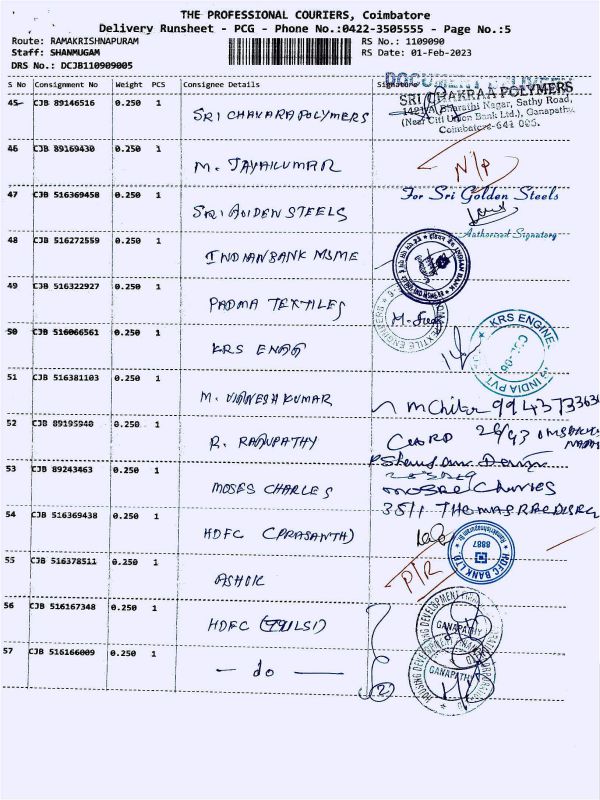 THE PROFESSIONAL COURIERS, Coimbatore
Delivery Runsheet - PCG - Phone No.:0422-3505555 - Page No.:5
Route: RAMAKRISHNAPURAM RS No.: 1109090
Staff: SHANMUGAM RS Date: 01-Feb-2023
DRS No.: DCJB110909005
S No Consignment No Weight PCS Consignee Details Signature
DOCUMENT DELIVERED
45 CJB 89146516 0.250 1 SRI CHAKARAPOLYMERS
SRI CHAKRAA POLYMERS
Bharathi Nagar, Sathy Road,
(Near Citi Union Bank Ltd.), Ganapathy,
Coimbatore-641 006.
46 CJB 89169430 0.250 1 M. JAYAKUMAR N/P
47 CJB 516369458 0.250 1 SRI GOLDEN STEELS
For Sri Golden Steels
Authorised Signatory
48 CJB 516272559 0.250 1 INDIANBANK MSME
INDIAN BANK
49 CJB 516322927 0.250 1 PADMA TEXTILES
TEXTILE ENGINEERS
50 CJB 516066561 0.250 1 KRS ENGG
KRS ENGINE
INDIA PVT.
51 CJB 516381103 0.250 1 M. VIGNESH KUMAR
52 CJB 89195940 0.250 1 R. RAGUPATHY
53 CJB 89243463 0.250 1 MOSES CHARLES
54 CJB 516369438 0.250 1 HDFC (PRASANTH)
HDFC BANK LTD.
8887
55 CJB 516378511 0.250 1 ASHOK P/R
56 CJB 516167348 0.250 1 HDFC (TULSI)
HOUSING DEVELOPMENT FINANCE
GANAPATHY
57 CJB 516166009 0.250 1 — do —
HOUSING DEVELOPMENT FINANCE
GANAPATHY
2